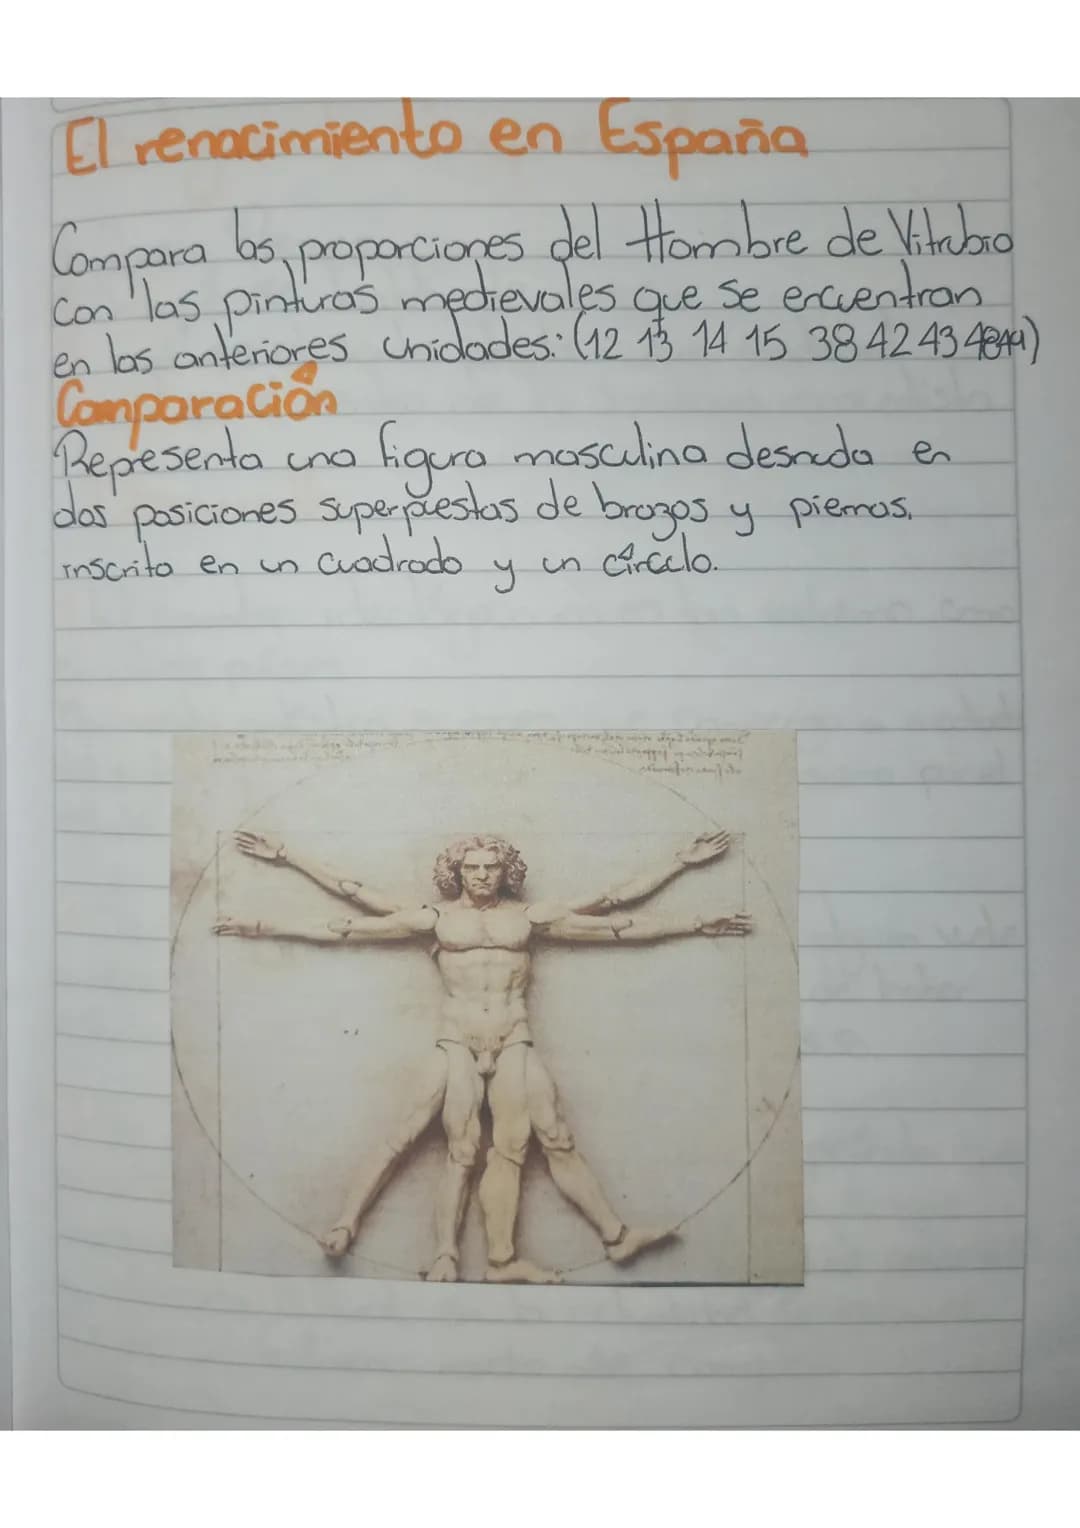 El renacimiento en España
Compara las proporciones del Hombre de Vitrubio
con las pinturas medievales que se encuentran
en las anteriores unidades: (12 13 14 15 38 42 43
Comparación
Representa una figura masculina desnuda en
dos posiciones superpuestas de brazos y piernas,
inscrita en un cuadrado y un círculo.